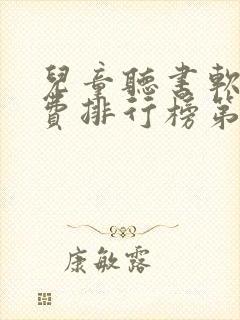 兒童聽書軟
費排行榜第
康敏露